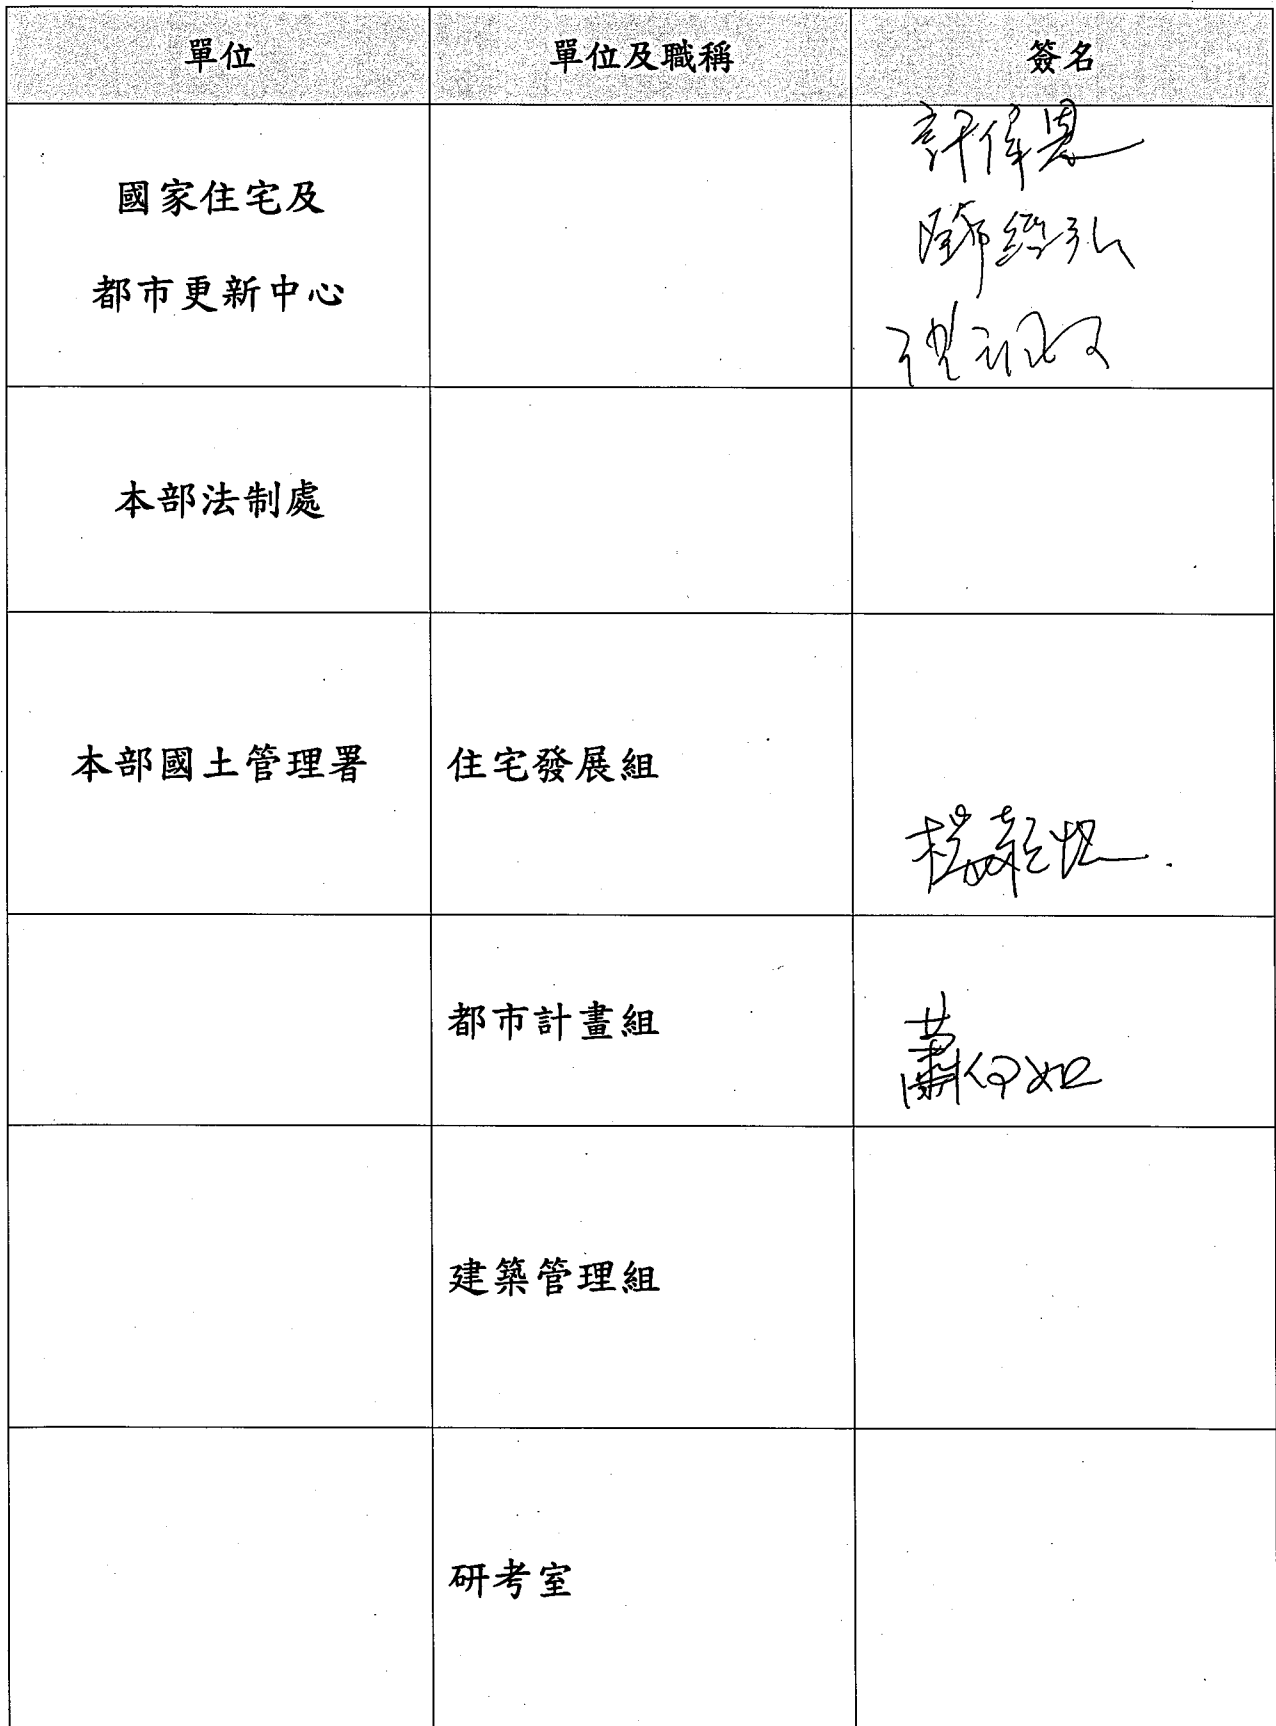 單位 單位及職稱 簽名
國家住宅及
都市更新中心
許偉恩
本部法制處
本部國土管理署 住宅發展組
都市計畫組
蕭伃如
建築管理組
研考室